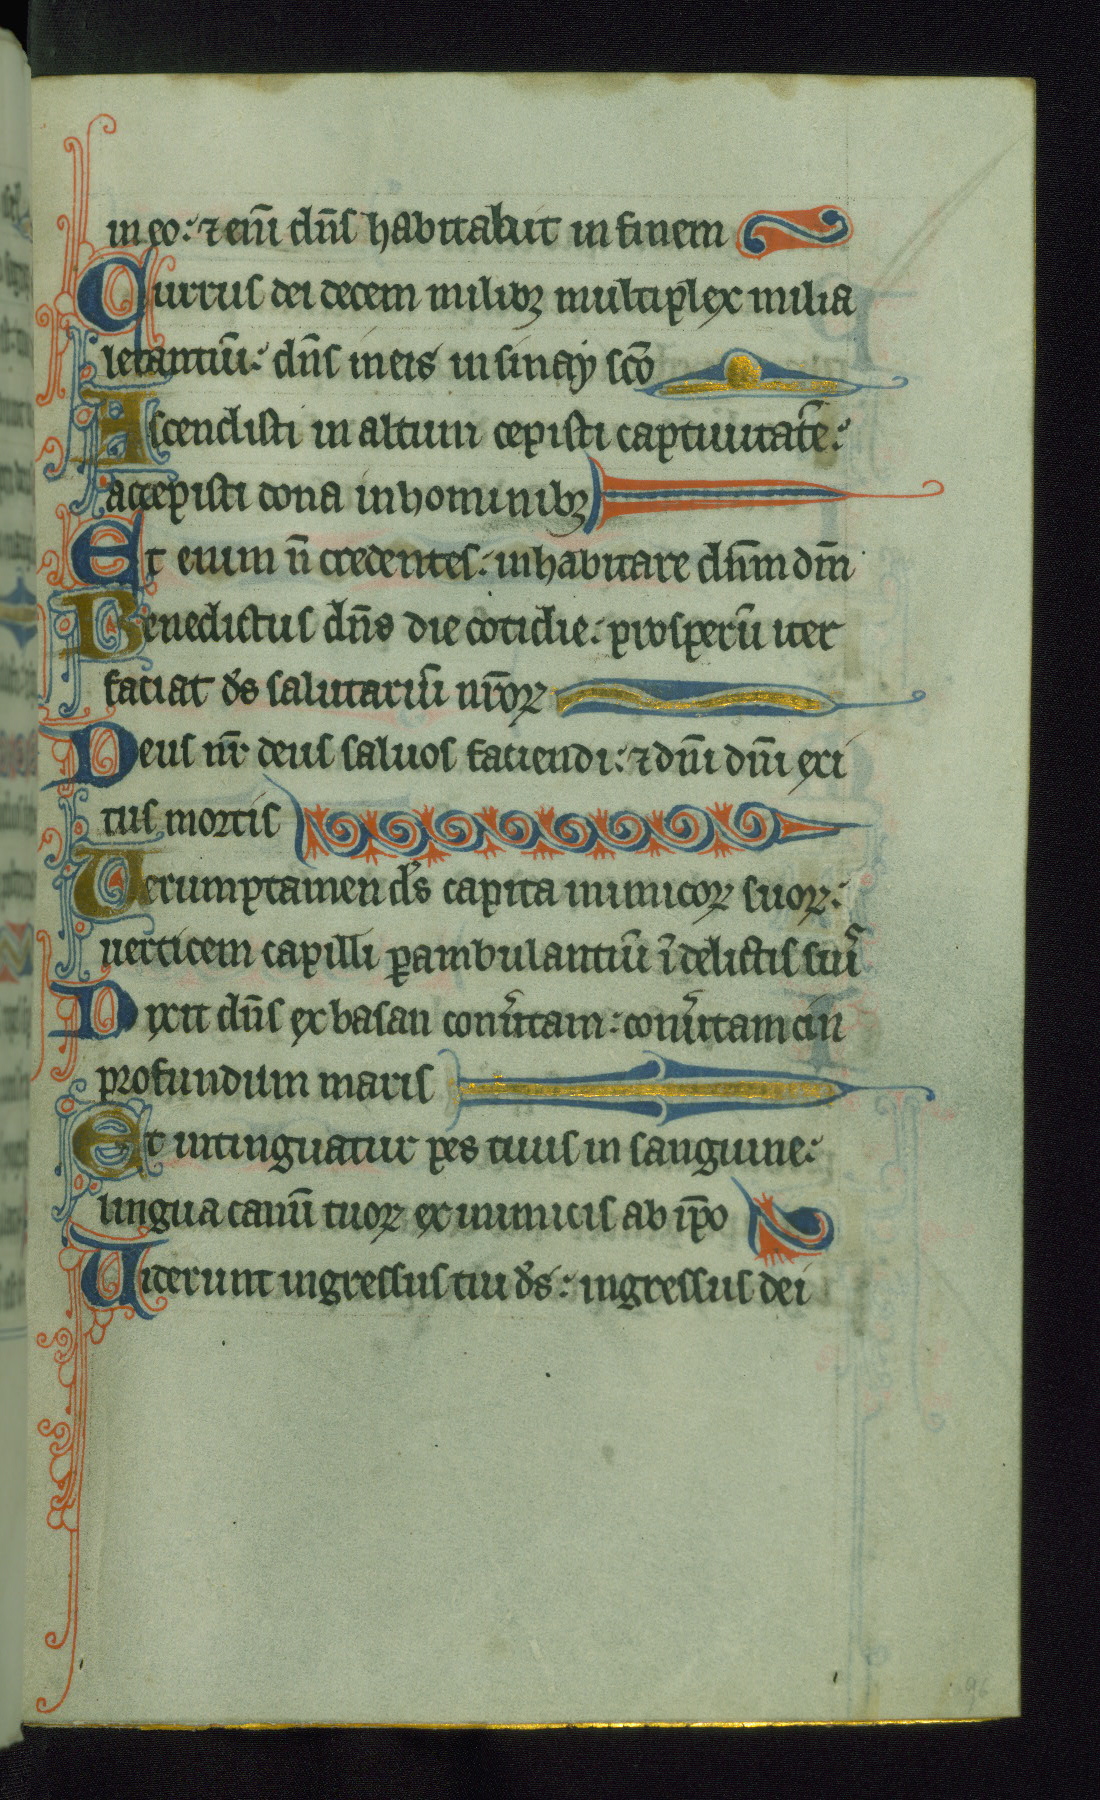 in eo: ⁊ eni᷑ dn̄s habitabit in finem
Currus dei decem milibꝫ multiplex milia
letantiū: dn̄s in eis in sinay scō
Ascendisti in altum cepisti captiuitatē:
accepisti dona in hominibꝫ
Et enim n̄ credentes: inhabitare dn̄m dm̄
Benedictus dn̄s die cotidie: prosperū iter
faciat ds̄ salutariū nr̄oꝝ
Deus nr̄ deus saluos faciendi: ⁊ dn̄i dn̄i exi
tus mortis
Verumptamen ds̄ capita inimicoꝝ suoꝝ:
uerticem capilli ꝑambulantiū ī delictis suis
Dixit dn̄s ex basan conũtam: conũtam in
profundum maris
Et intinguatur pes tuus in sanguine:
lingua canū tuoꝝ ex inimicis ab ip̄o
Uiderunt ingressus tui ds̄: ingressus dei
96